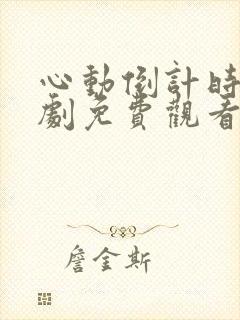 心動倒計時
劇免費觀看
詹金斯